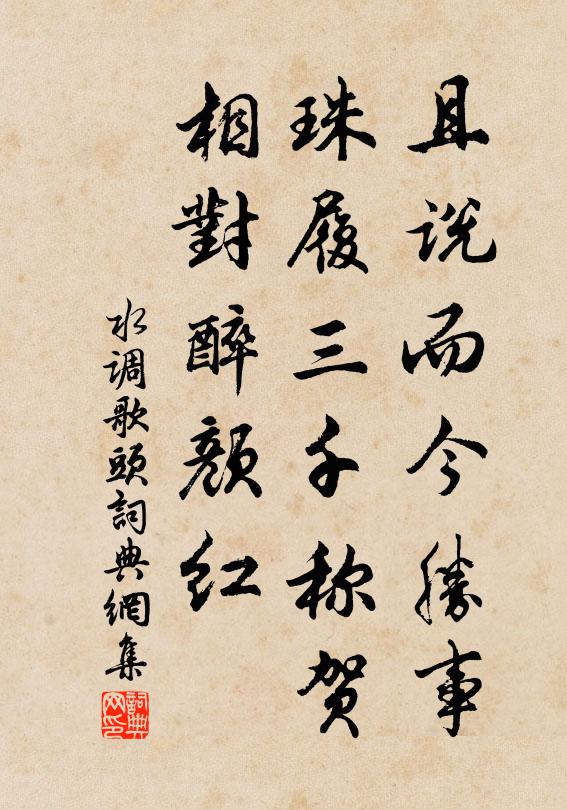 且说而今勝事
珠履三千称贺
相對醉顔红
水调歌頭詞典網集
詞典
网印